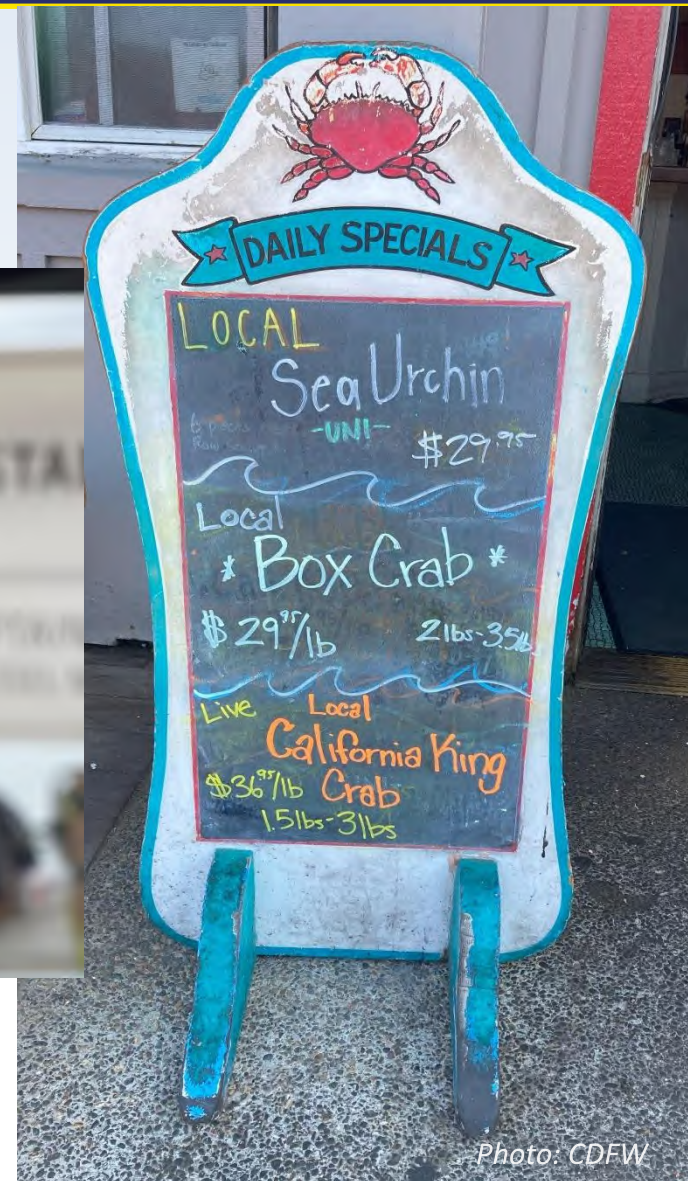 DAILY SPECIALS
LOCAL
Sea Urchin
-UNI-
$29.95
Local
* Box Crab *
$29.95/lb 2lbs-3.5lb
Live Local
California King
$36.95/lb Crab
1.5lbs-3lbs
Photo: CDFW